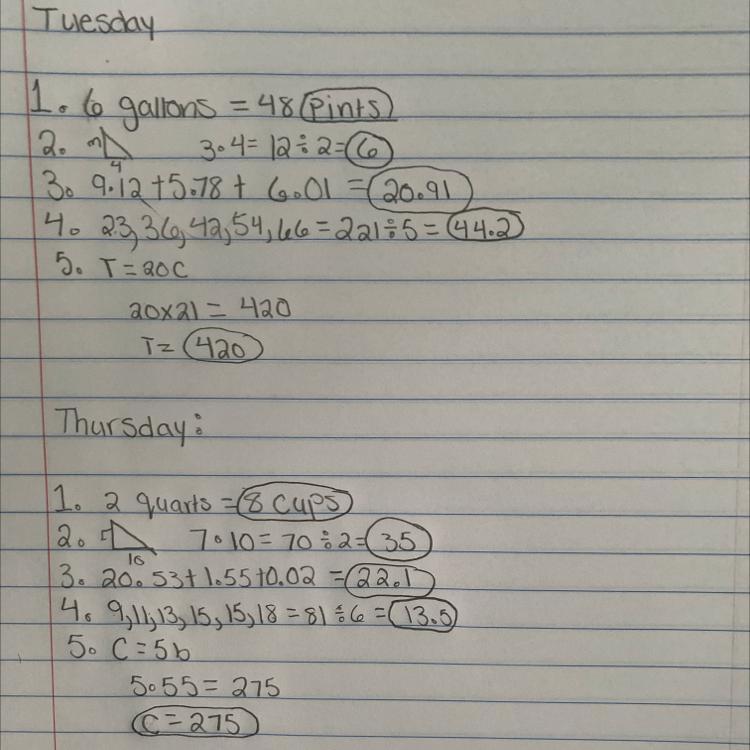 Tuesday
1. 6 gallons = 48 pints
2. 3 4 3·4= 12÷2=6
3. 9.12+5.78+ 6.01 = 20.91
4. 23,36,42,54,66=221÷5=44.2
5. T=20C
20x21 = 420
T= 420
Thursday:
1. 2 quarts = 8 cups
2. 7 10 7·10= 70÷2=35
3. 20.53+1.55+0.02 =22.1
4. 9,11,13,15,15,18=81÷6=13.5
5. C=5b
5·55= 275
C=275